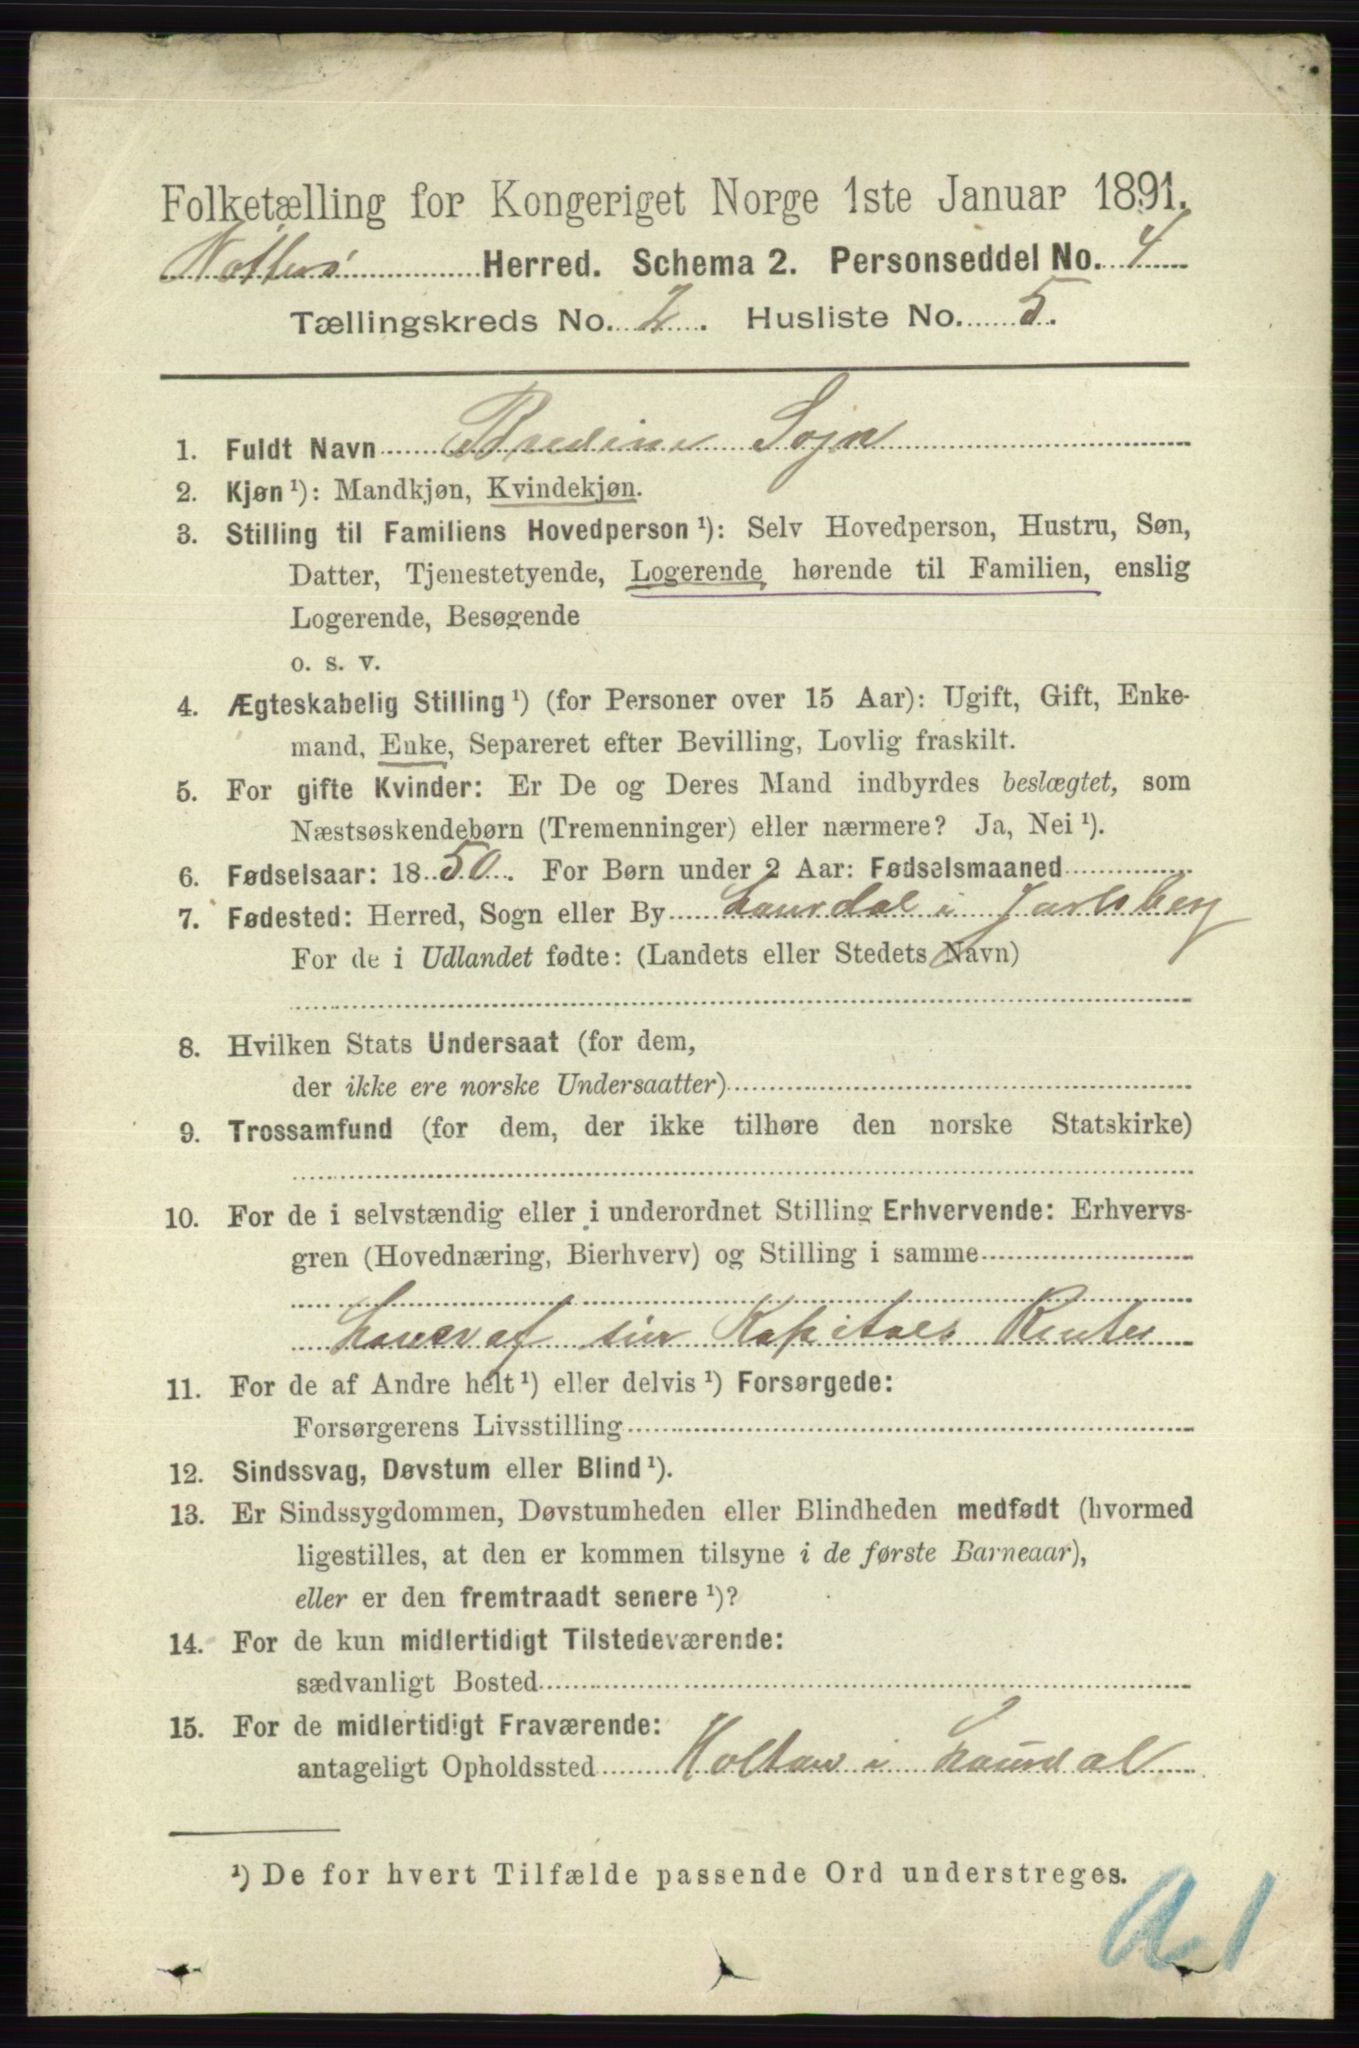 Folketælling for Kongeriget Norge 1ste Januar 1891.
Nøtterø Herred. Schema 2. Personseddel No. 4
Tællingskreds No. 2. Husliste No. 5.
1. Fuldt Navn Bredine Sojn
2. Kjøn ¹): Mandkjøn, Kvindekjøn.
3. Stilling til Familiens Hovedperson ¹): Selv Hovedperson, Hustru, Søn,
Datter, Tjenestetyende, Logerende hørende til Familien, enslig
Logerende, Besøgende
o. s. v.
4. Ægteskabelig Stilling ¹) (for Personer over 15 Aar): Ugift, Gift, Enke-
mand, Enke, Separeret efter Bevilling, Lovlig fraskilt.
5. For gifte Kvinder: Er De og Deres Mand indbyrdes beslægtet, som
Næstsøskendebørn (Tremenninger) eller nærmere? Ja, Nei ¹).
6. Fødselsaar: 1850. For Børn under 2 Aar: Fødselsmaaned
7. Fødested: Herred, Sogn eller By Laurdal i Jarlsberg
For de i Udlandet fødte: (Landets eller Stedets Navn)
8. Hvilken Stats Undersaat (for dem,
der ikke ere norske Undersaatter)
9. Trossamfund (for dem, der ikke tilhøre den norske Statskirke)
10. For de i selvstændig eller i underordnet Stilling Erhvervende: Erhvervs-
gren (Hovednæring, Bierhverv) og Stilling i samme
Lever af sin Kapitals Renter
11. For de af Andre helt ¹) eller delvis ¹) Forsørgede:
Forsørgerens Livsstilling
12. Sindssvag, Døvstum eller Blind ¹).
13. Er Sindssygdommen, Døvstumheden eller Blindheden medfødt (hvormed
ligestilles, at den er kommen tilsyne i de første Barneaar),
eller er den fremtraadt senere ¹)?
14. For de kun midlertidigt Tilstedeværende:
sædvanligt Bosted
15. For de midlertidigt Fraværende:
antageligt Opholdssted Holtan i Laurdal
¹) De for hvert Tilfælde passende Ord understreges.
A.1